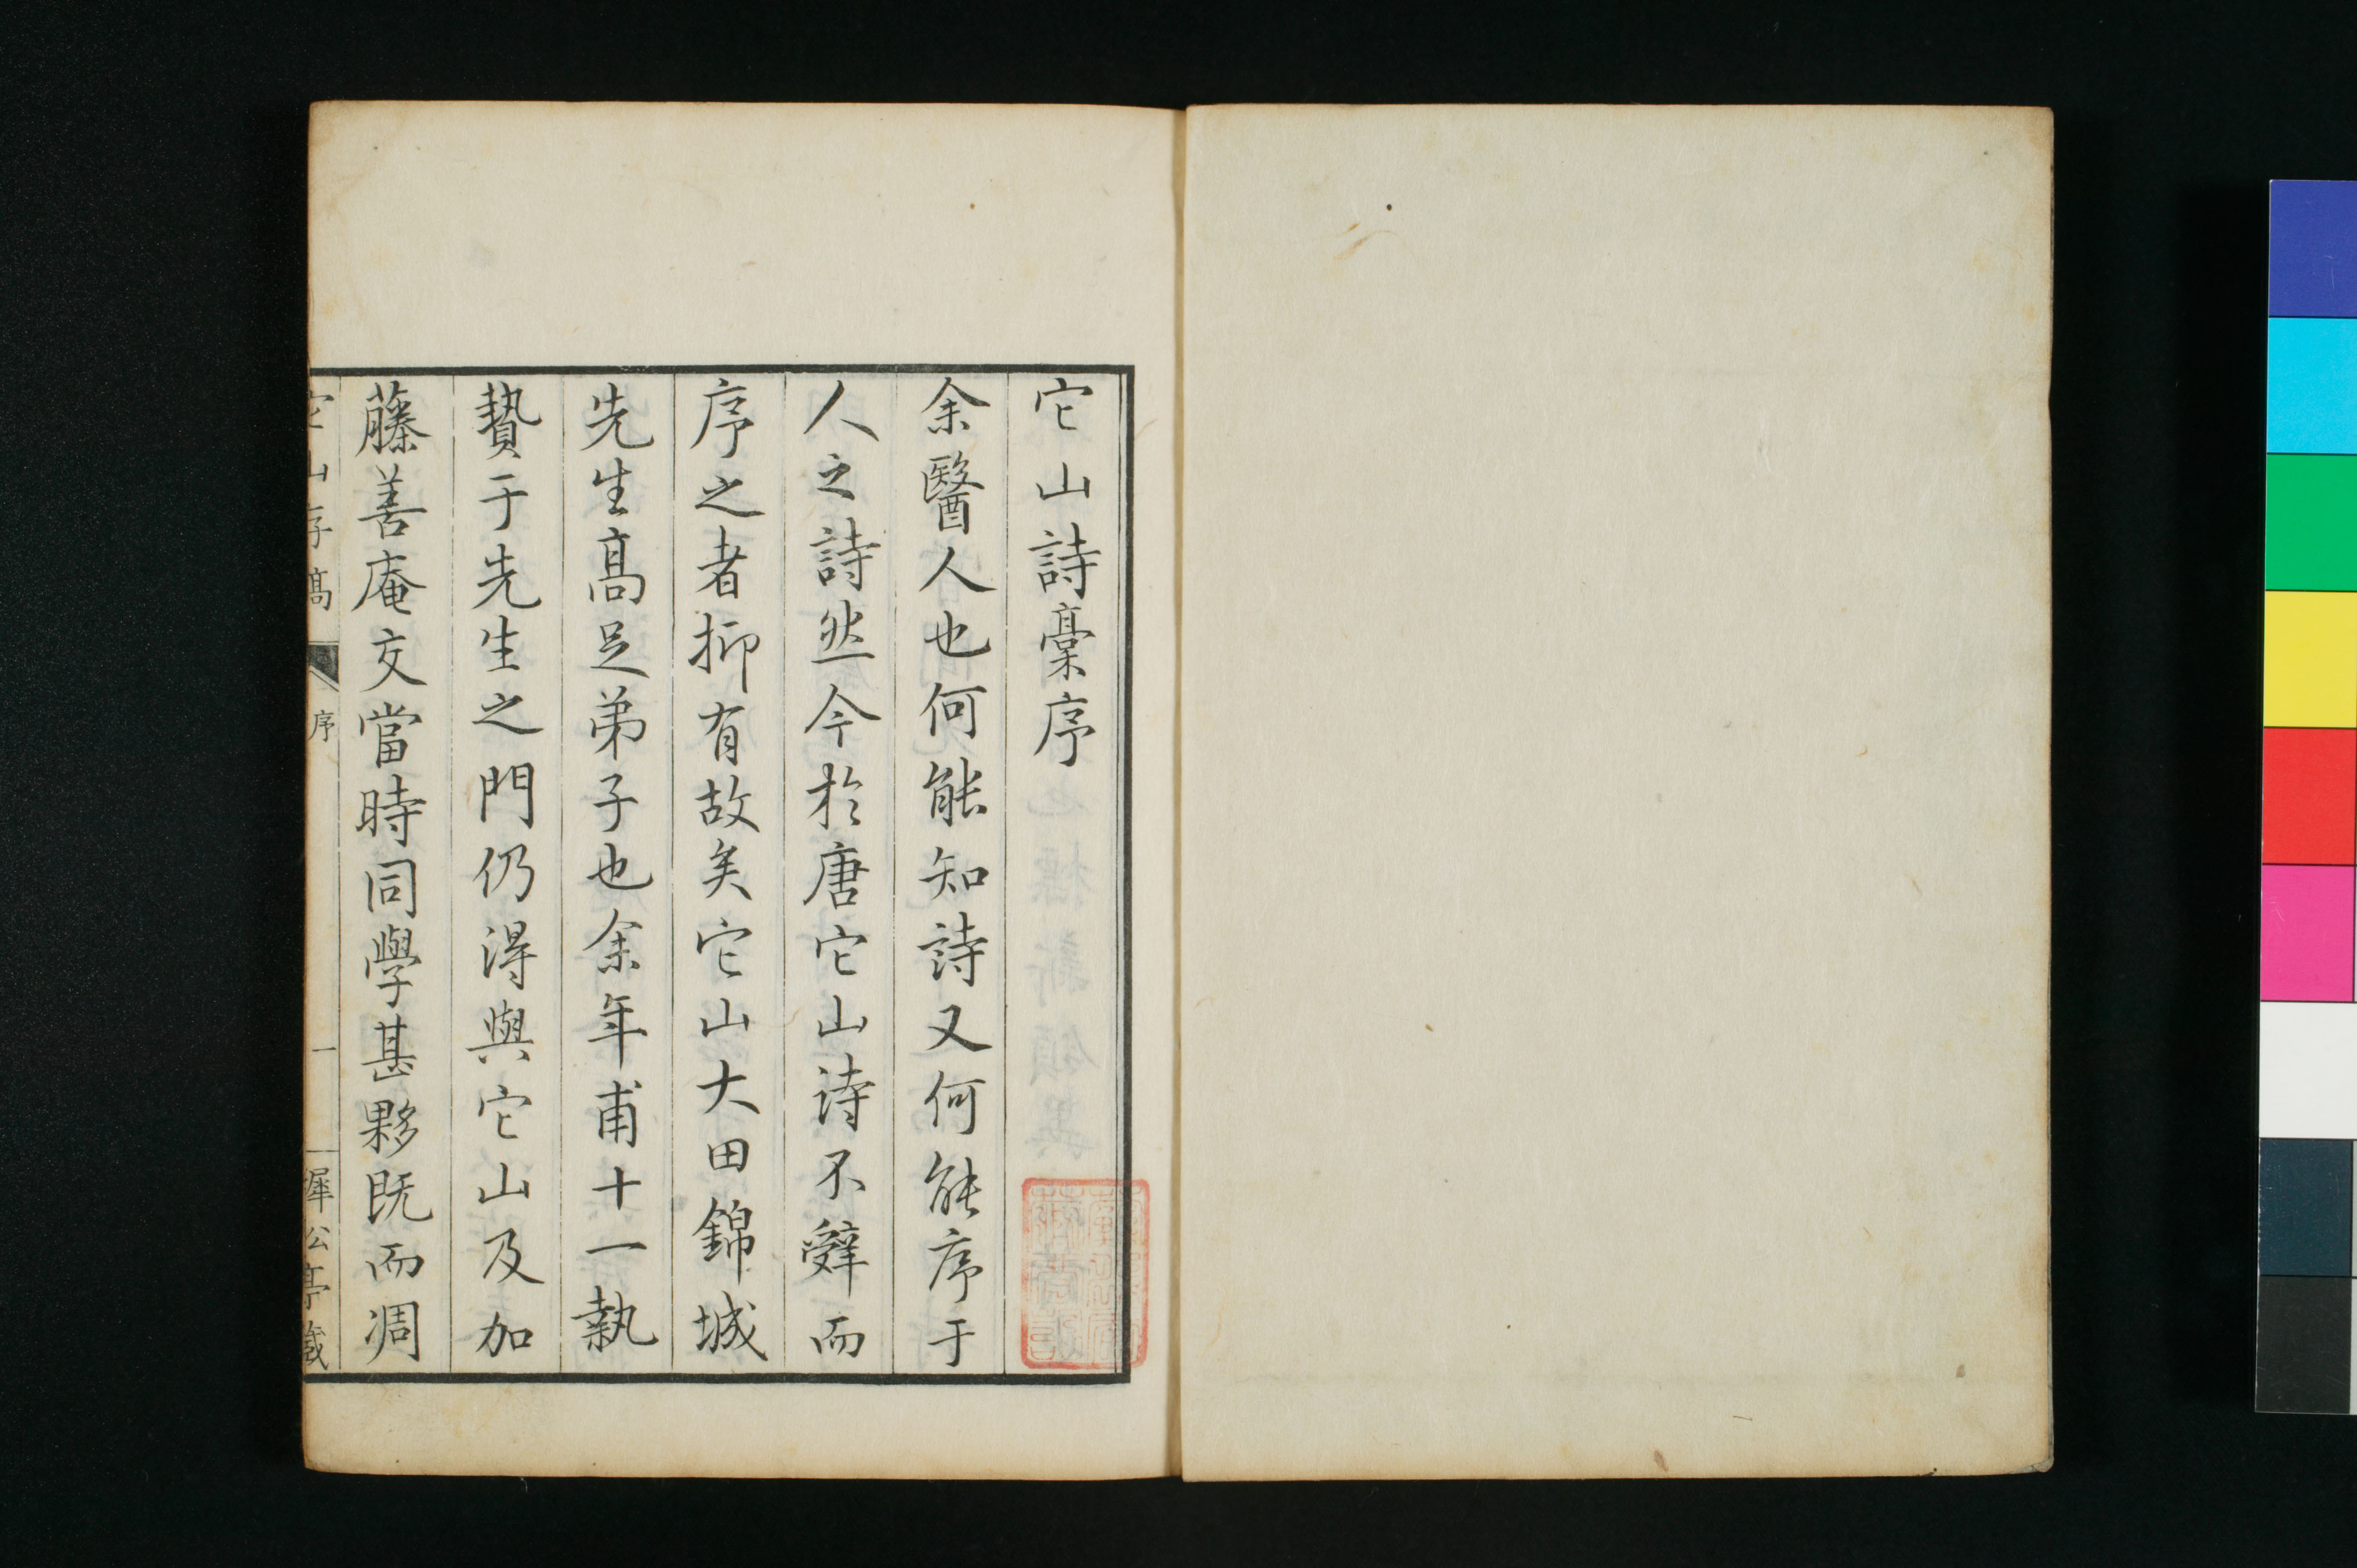 它山詩稾序
余醫人也何能知詩又何能序于
人之詩然今於唐它山詩不辤而
序之者抑有故矣它山大田錦城
先生高足弟子也余年甫十一執
贄于先生之門仍得與它山及加
藤善庵交當時同學甚夥既而凋
它山存稾
序
一
公亭藏